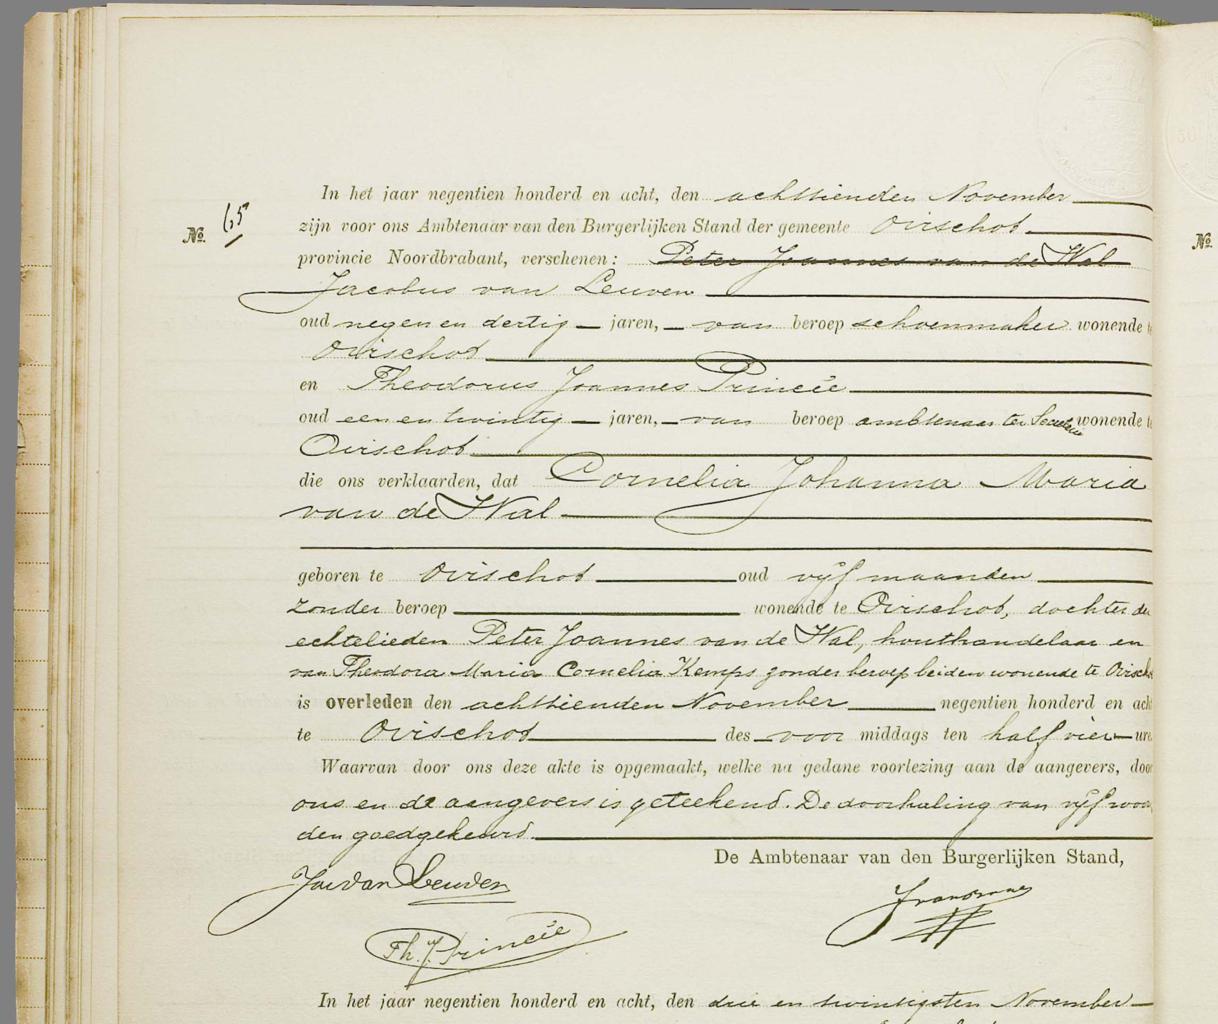 In het jaar negentien honderd en acht, den achttienden November
№ 65 zijn voor ons Ambtenaar van den Burgerlijken Stand der gemeente Oirschot
provincie Noordbrabant, verschenen: Peter Joannes van de Wal
Jacobus van Leuven
oud negen en dertig jaren, van beroep schoenmaker wonende t
Oirschot
en Theodorus Joannes Princée
oud een en twintig jaren, van beroep ambtenaar ter Secretarie wonende t
Oirschot
die ons verklaarden, dat Cornelia Johanna Maria
van de Wal
geboren te Oirschot oud vijf maanden
zonder beroep wonende te Oirschot, dochter der
echtelieden Peter Joannes van de Wal, houthandelaar en
van Theodora Maria Cornelia Kemps zonder beroep beiden wonende te Oirscho
is overleden den achttienden November negentien honderd en ach
te Oirschot des voor middags ten half vier ure
Waarvan door ons deze akte is opgemaakt, welke na gedane voorlezing aan de aangevers, doo
ons en de aangevers is geteekend. De doorhaling van vijf woor
den goedgekeurd.
De Ambtenaar van den Burgerlijken Stand,
Jac van Leuven
Th. J. Princée
In het jaar negentien honderd en acht, den drie en twintigsten November
№